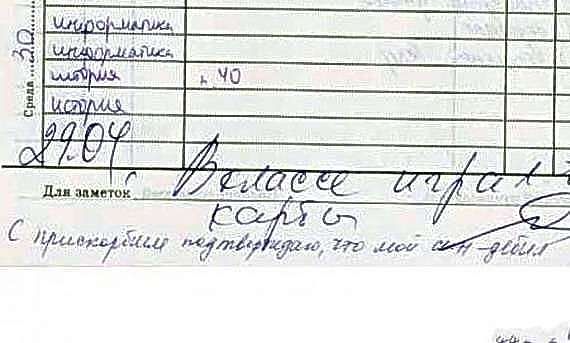 Среда 30
информатика
информатика
история ч. 40
история
29.04
Для заметок В классе играл
карты
С прискорбием подтверждаю, что мой сын-дебил